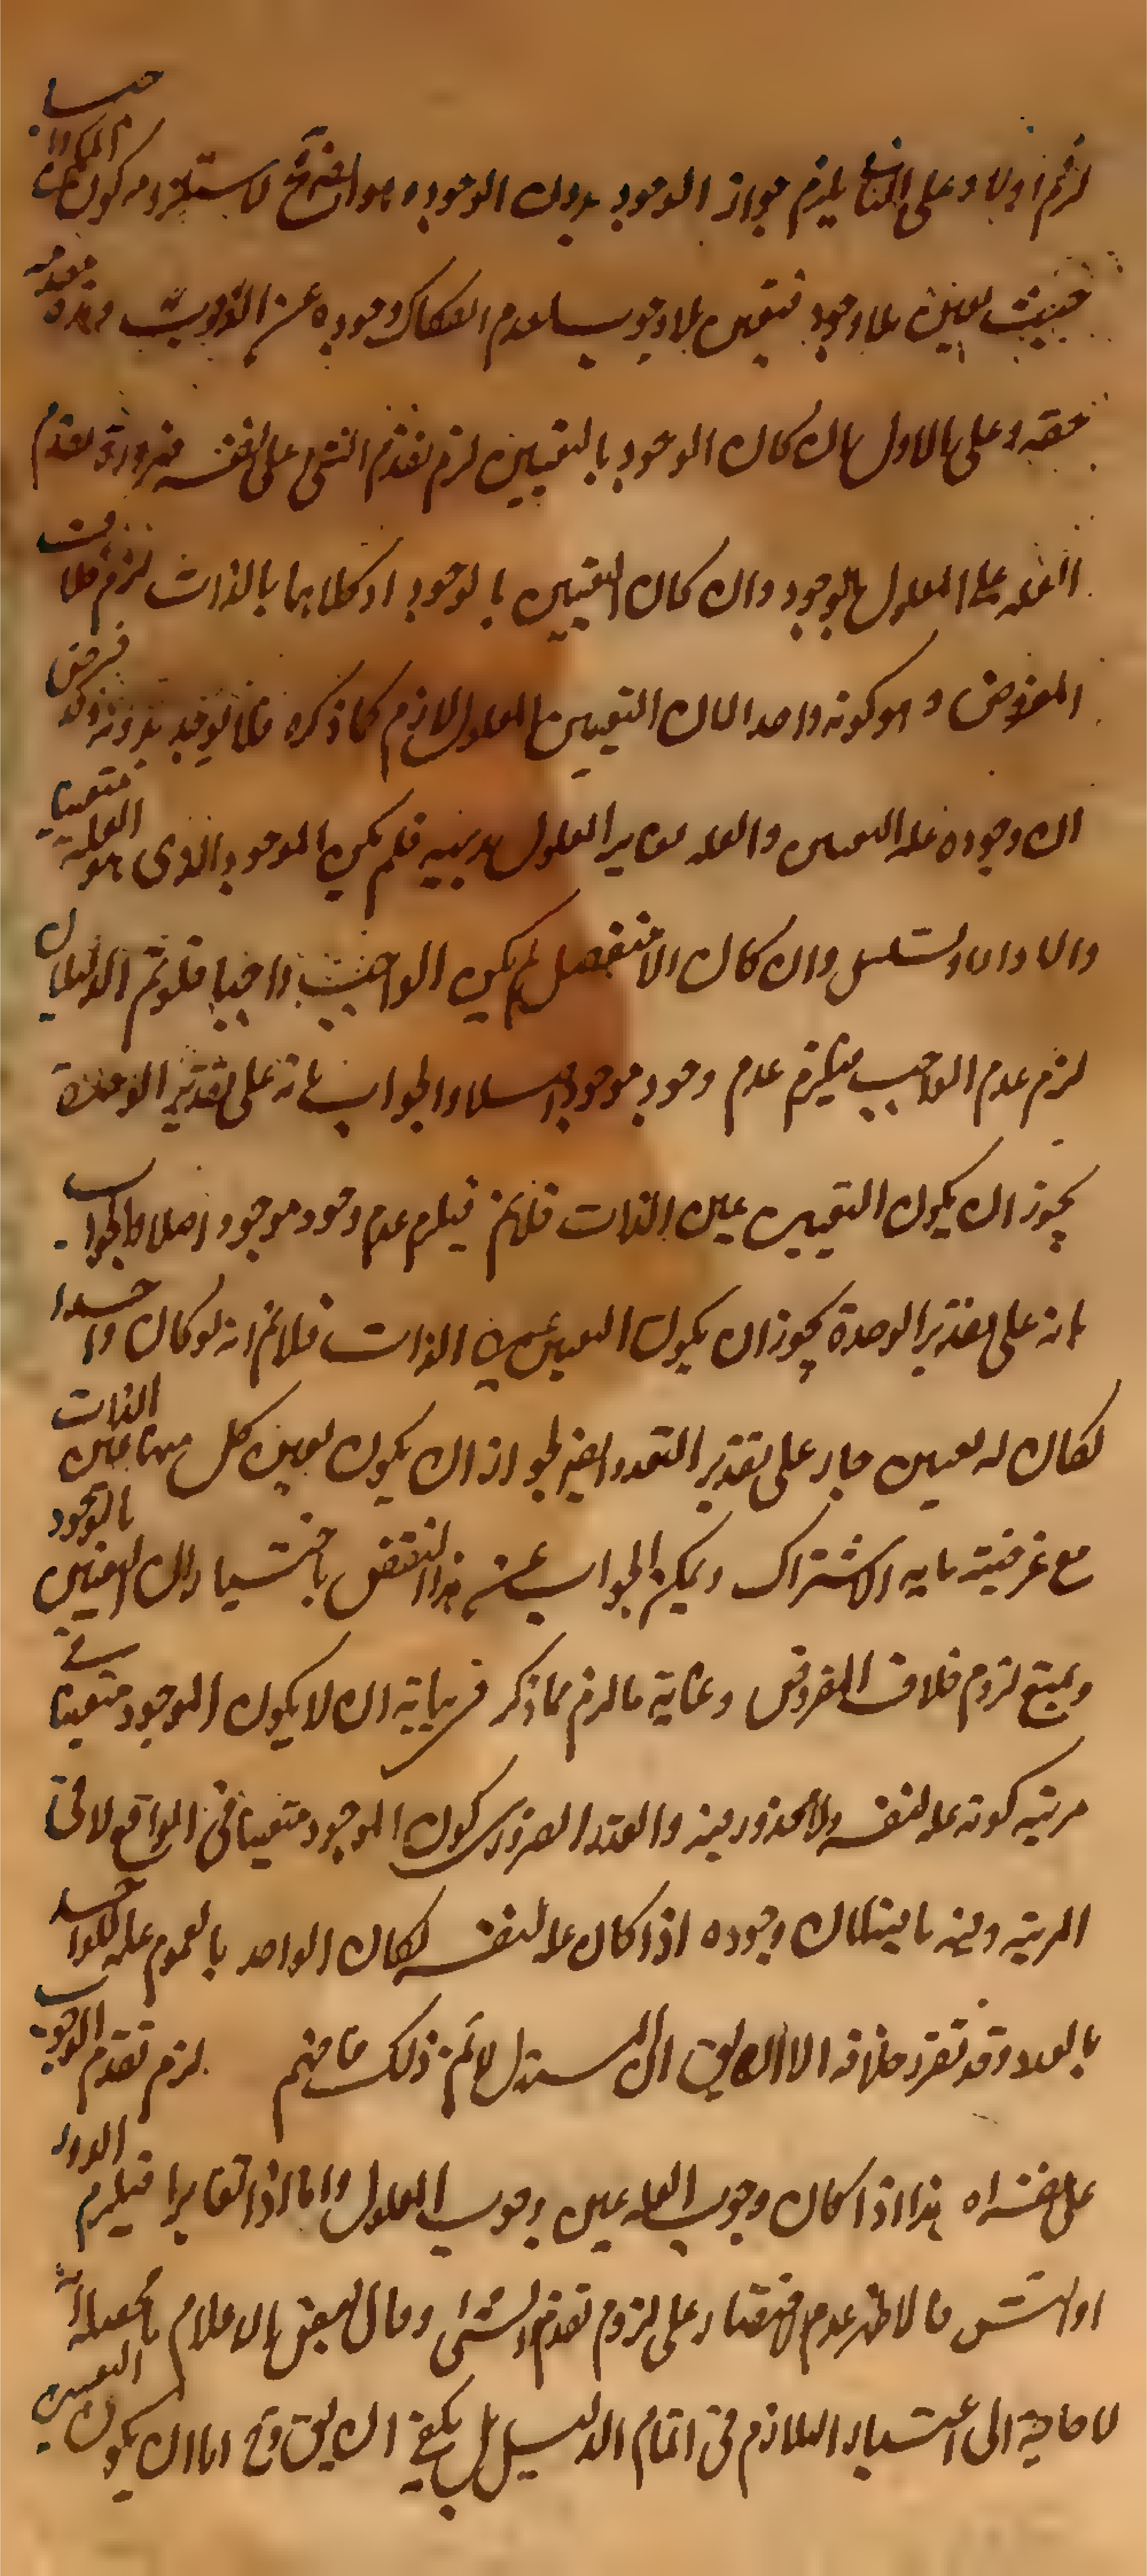 لزم اولا وعلى الثانى يلزم جواز الوجود بدون الوجود وهو ايضا مح لاستلزامه كون الممكن واجبا
حيث تعين بلا وجود فتعين بلا وجوب لعدم انفكاك وجوده عن الوجوب وهذه مقدمة
حقه وعلى الاول ان كان الوجود بالتعين لزم تقدم الشئ على نفسه ضرورة تقدم
العلة على المعلول بالوجود وان كان التعين بالوجود او كلاهما بالذات لزم خلاف
المفروض وهو كونه واحدا لان التعين المعلول لازم كما ذكره فلا يوجد بدونه وقد فرض
ان وجوده علة التعين والعلة يغاير المعلول مرتبة فلم يكن الموجود الذى هو العلة متعينا
والا دار او تسلسل وان كان لامر منفصل لم يكن الواجب واجبا فلو تم الدليلان
لزم عدم الواجب فيلزم عدم وجود موجود اصلا والجواب بانه على تقدير الوحدة
يجوز ان يكون التعين عين الذات فلا يتم فيلزم عدم وجود موجود اصلا والجواب
بانه على تقدير الوحدة يجوز ان يكون التعين عين الذات فلا يتم انه لو كان واحدا
لكان له تعين جار على تقدير التعدد ايضا لجواز ان يكون تعين كل منهما عين الذات
مع عرضية ما به الاشتراك ويمكن الجواب عن هذا النقض باختيار ان التعين بالوجود
ويمنع لزوم خلاف المفروض وغاية ما لزم مما ذكر فى بيانه ان لا يكون الموجود متعينا فى
مرتبة كونه علة لنفسه ولا محذور فيه والقدر الضرورى كون الموجود متعينا فى الواقع لا فى
المرتبة وفيه ما فيه لان وجوده اذا كان علة لنفسه لكان الواحد بالعموم علة للواحد
بالعدد وقد تقرر خلافه الا ان يق ان المستدل لا يتم ذلك فافهم لزم تقدم الوجوب
على نفسه اه هذا اذا كان وجوب العلة عين وجوب المعلول واما اذا تغايرا فيلزم الدور
او التس فالاظهر عدم الاقتصار على لزوم تقدم الشئ وقال بعض الاعلام
لا حاجة الى اعتبار التلازم فى اتمام الدليل بل يكفى ان يق وح اما ان يكون التعين